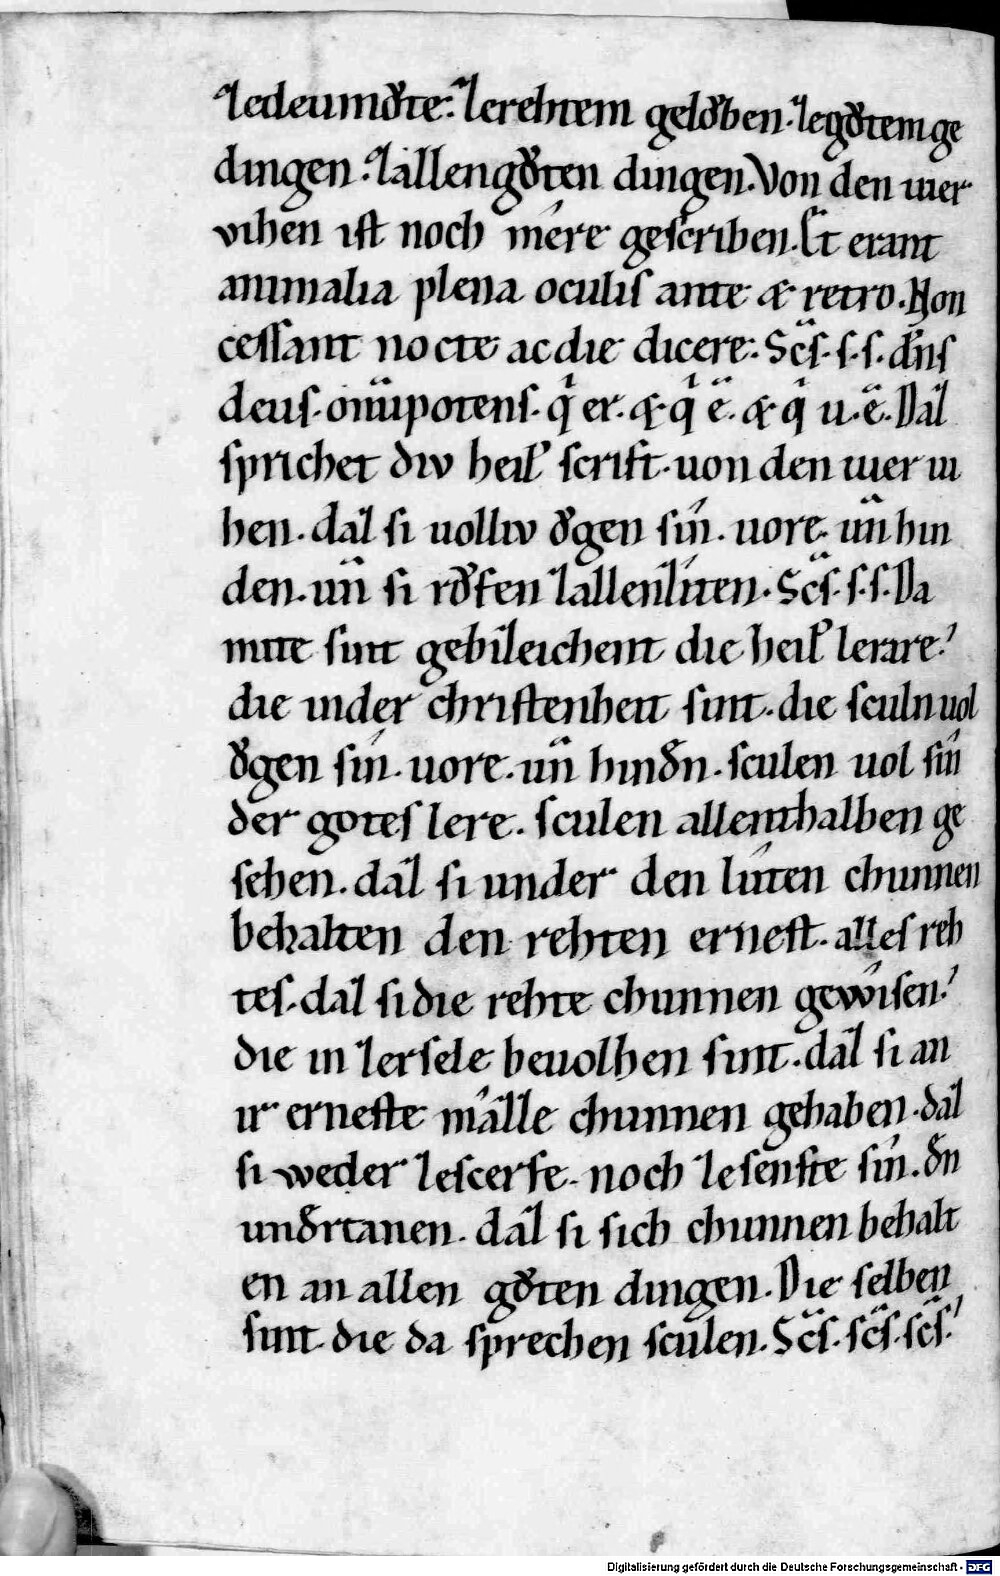 zedeumůte. zerehtem gelǒben. zegůtem ge
dingen. zallengůten dingen. Von den uier
vihen ist noch mêre gescriben. Et erant
animalia plena oculis ante & retro. Non
cessant nocte acdie dicere. Sc̄s. s. s. dn̄s
deus. om̄ipotens. qͥ er. & qͥ ē. & qͥ u. ē. Daz
sprichet div heil' scrift. uon den uier ui
hen. daz si uolliv ǒgen sín. uore. un̄ hin
den. un̄ si růfen zallenzíten. Sc̄s. s. s. Da
mite sint gebizeichent die heil' lerare.
die inder christenheit sint. die sculn uol
ǒgen sín. uore. un̄ hindn. sculen uol sín
der gotes lere. sculen allenthalben ge
sehen. daz si under den lûten chunnen
behalten den rehten ernest. alles reh
tes. daz sidie rehte chunnen gewîsen.
die in zersele beuolhen sint. daz si an
ir erneste mâzze chunnen gehaben. daz
si weder zescerfe. noch zesenfte sín. dn
undrtanen. daz si sich chunnen behalt
en an allen gůten dingen. Die selben
sint. die da sprechen sculen. Sc̄s. sc̄s. sc̄s.
Digitalisierung gefördert durch die Deutsche Forschungsgemeinschaft - DFG